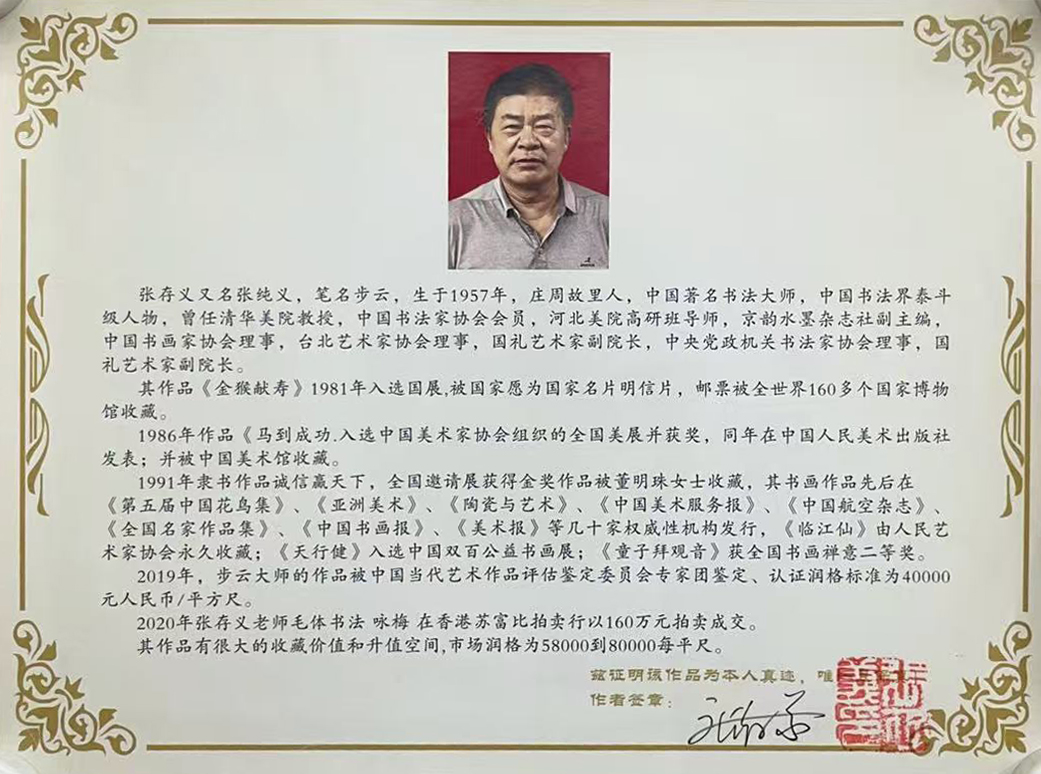 张存义又名张纯义，笔名步云，生于1957年，庄周故里人，中国著名书法大师，中国书法界泰斗
级人物，曾任清华美院教授，中国书法家协会会员，河北美院高研班导师，京韵水墨杂志社副主编，
中国书画家协会理事，台北艺术家协会理事，国礼艺术家副院长，中央党政机关书法家协会理事，国
礼艺术家副院长。
其作品《金猴献寿》1981年入选国展,被国家愿为国家名片明信片，邮票被全世界160多个国家博物
馆收藏。
1986年作品《马到成功.入选中国美术家协会组织的全国美展并获奖，同年在中国人民美术出版社
发表；并被中国美术馆收藏。
1991年隶书作品诚信赢天下，全国邀请展获得金奖作品被董明珠女士收藏，其书画作品先后在
《第五届中国花鸟集》、《亚洲美术》、《陶瓷与艺术》、《中国美术服务报》、《中国航空杂志》、
《全国名家作品集》、《中国书画报》、《美术报》等几十家权威性机构发行，《临江仙》由人民艺
术家协会永久收藏；《天行健》入选中国双百公益书画展；《童子拜观音》获全国书画禅意二等奖。
2019年，步云大师的作品被中国当代艺术作品评估鉴定委员会专家团鉴定、认证润格标准为40000
元人民币/平方尺。
2020年张存义老师毛体书法 咏梅 在香港苏富比拍卖行以160万元拍卖成交。
其作品有很大的收藏价值和升值空间,市场润格为58000到80000每平尺。
兹证明该作品为本人真迹，唯
作者签章：